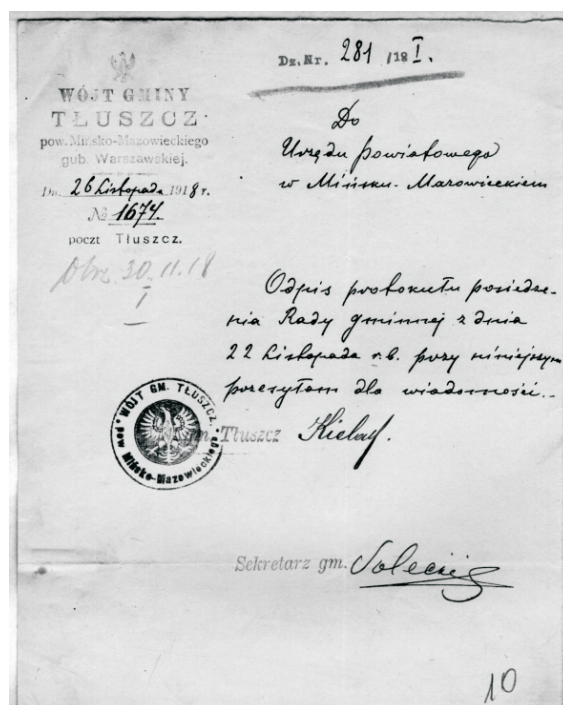 WÓJT GMINY
TŁUSZCZ
pow. Mińsko-Mazowieckiego
gub. Warszawskiej.
Dn. 26 Listopada 1918 r.
№ 1674.
poczt Tłuszcz.
30.11.18
I
Dz. Nr. 281 /18 I.
Do
Urzędu Powiatowego
w Mińsku-Mazowieckiem
Odpis protokułu posiedze-
nia Rady gminnej z dnia
22 Listopada r.b. przy niniejszym
przesyłam dla wiadomości.
WÓJT GM. TŁUSZCZ
pow Mińsko-Mazowieckiego
gm. Tłuszcz
Sekretarz gm. Solecki
10